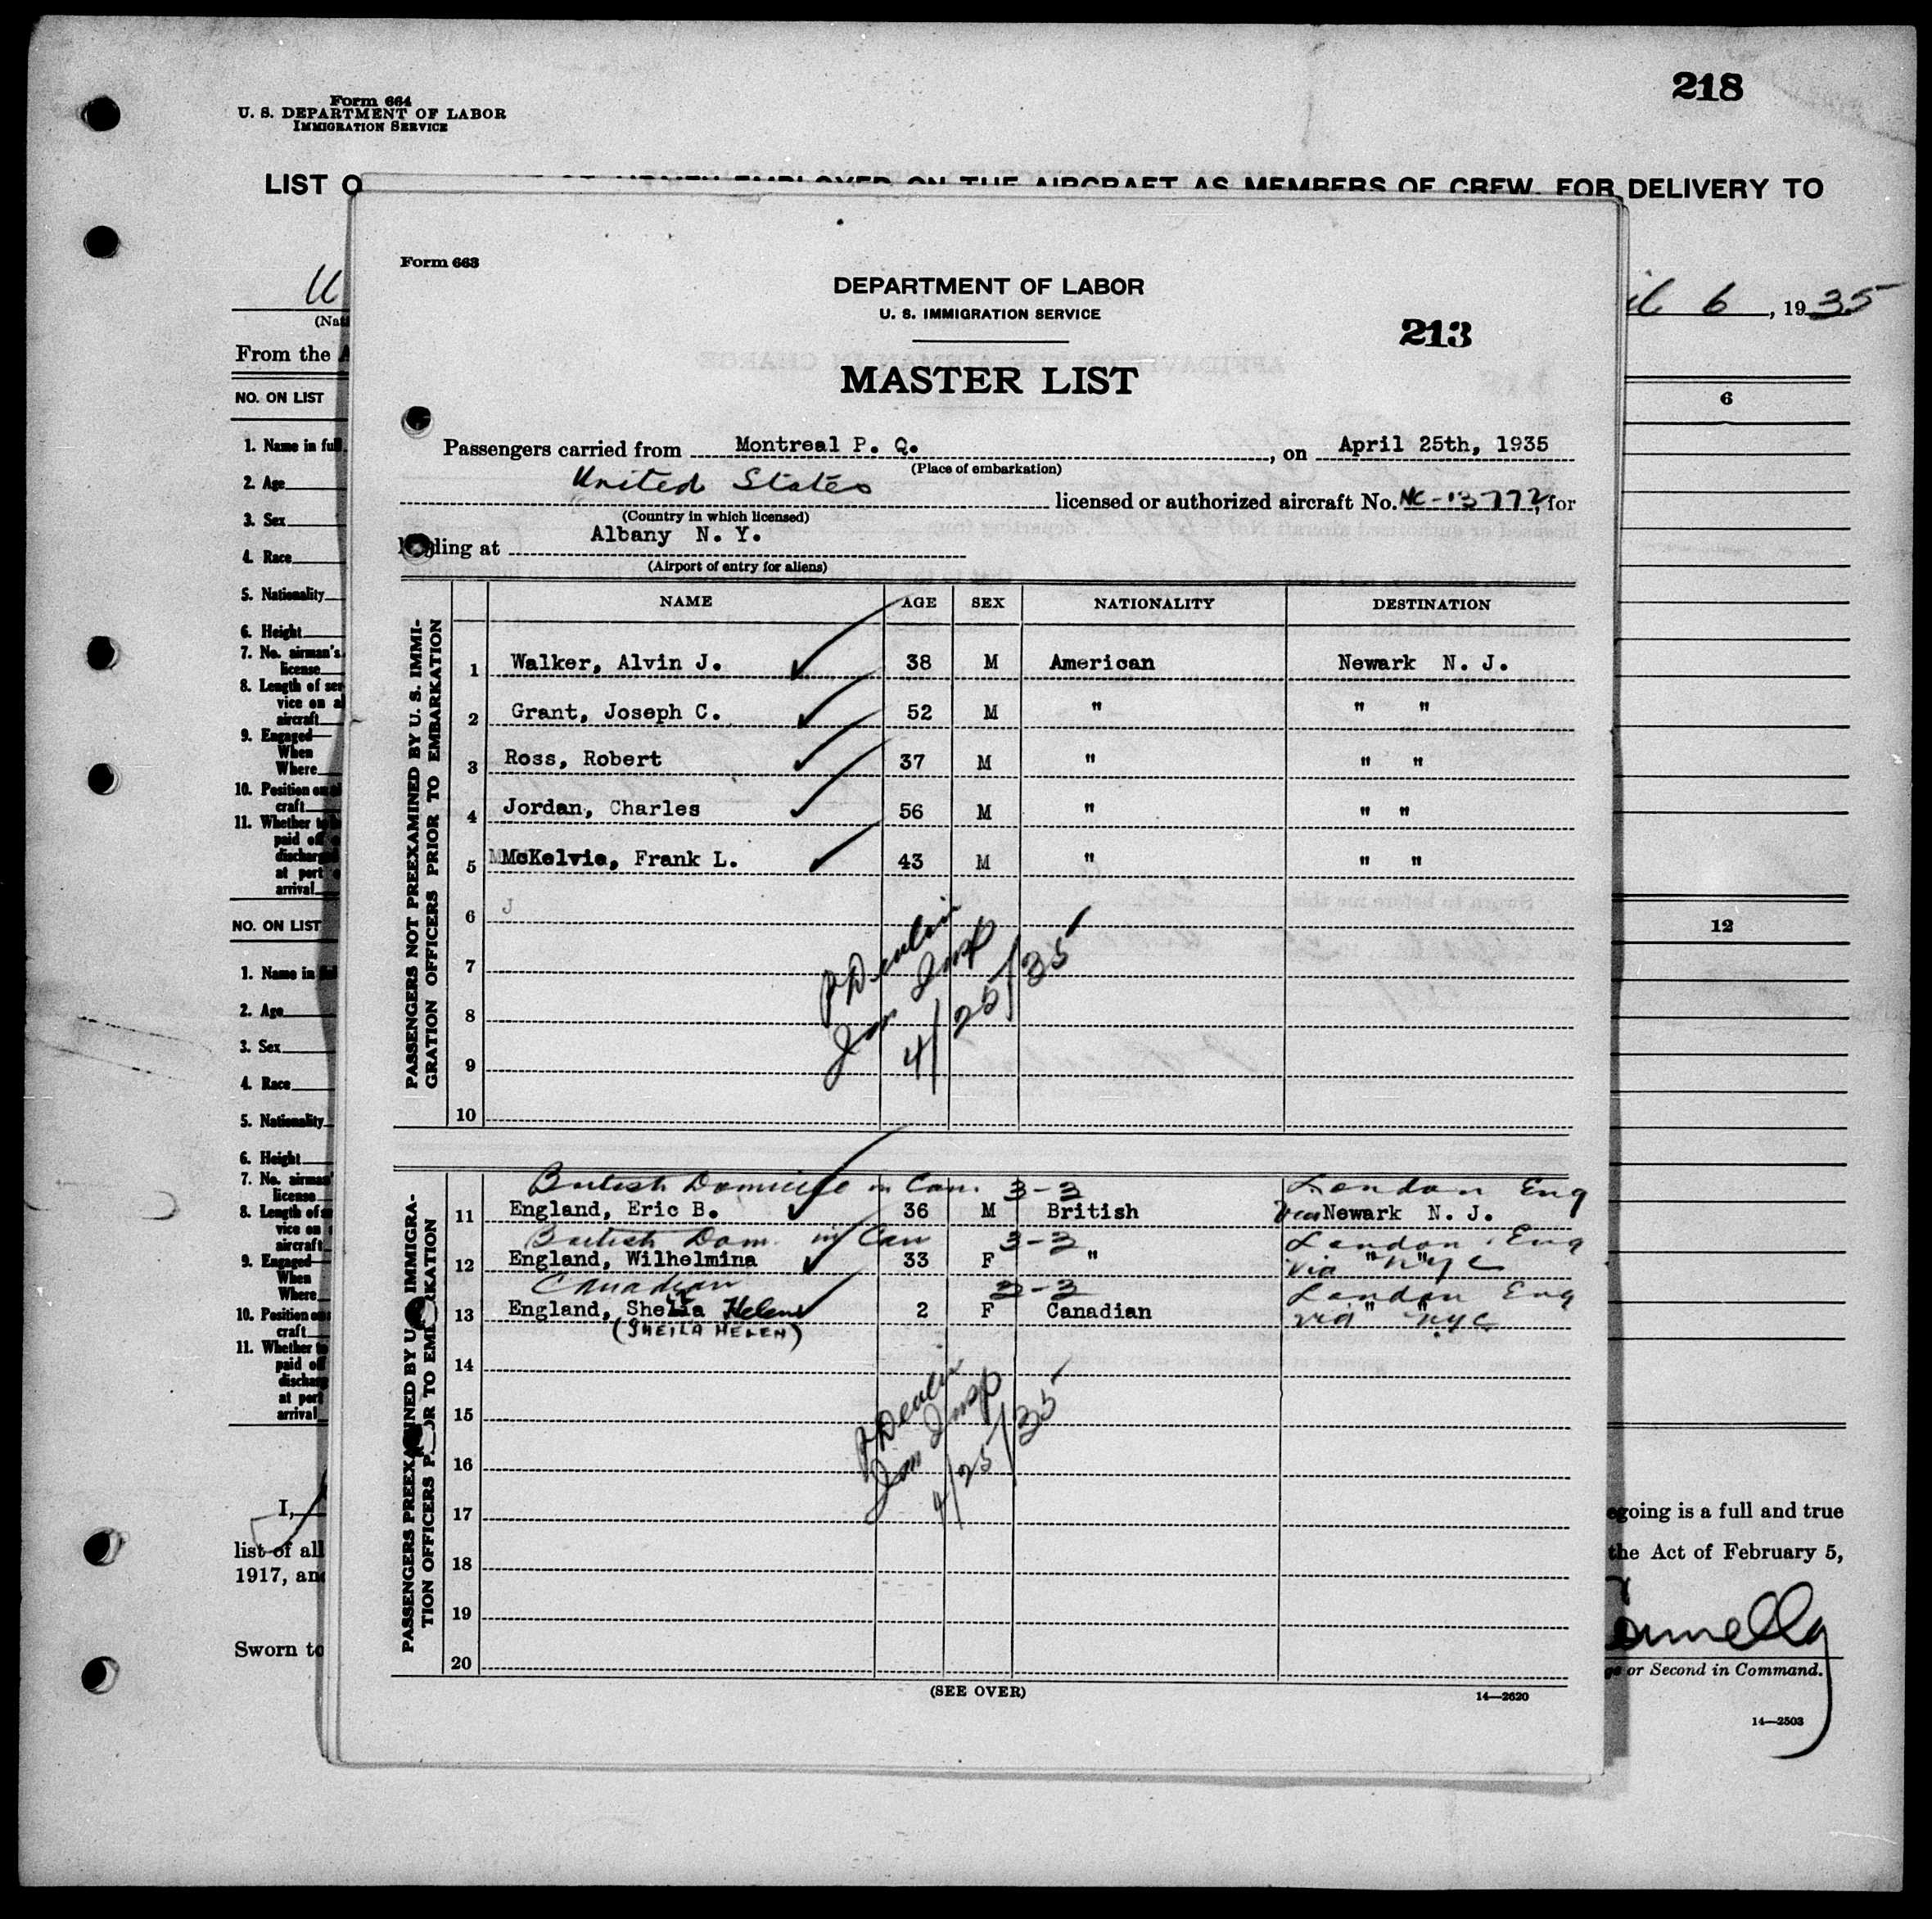 218
Form 664
U. S. DEPARTMENT OF LABOR
IMMIGRATION SERVICE
LIST O
EMPLOYED ON THE AIRCRAFT AS MEMBERS OF CREW, FOR DELIVERY TO
6, 1935
From the
NO. ON LIST
6
1. Name in full
2. Age
3. Sex
4. Race
5. Nationality
6. Height
7. No. airman's
license
8. Length of ser
vice on a
aircraft
9. Engaged
When
Where
10. Position on
craft
11. Whether
paid off
discharg
at port
arrival
NO. ON LIST
12
1. Name in
2. Age
3. Sex
4. Race
5. Nationality
6. Height
7. No. airman'
license
8. Length of
vice on
aircraft
9. Engaged
When
Where
10. Position on
craft
11. Whether
paid of
discharg
at port
arrival
I,
egoing is a full and true
list of all
the Act of February 5,
1917, and
Sworn to
or Second in Command.
14—2503
Form 663
DEPARTMENT OF LABOR
U. S. IMMIGRATION SERVICE
213
MASTER LIST
Passengers carried from Montreal P. Q., on April 25th, 1935
(Place of embarkation)
United States licensed or authorized aircraft No. NC-13772, for
(Country in which licensed)
ding at Albany N. Y.
(Airport of entry for aliens)
NAME AGE SEX NATIONALITY DESTINATION
PASSENGERS NOT PREEXAMINED BY U. S. IMMI-
GRATION OFFICERS PRIOR TO EMBARKATION
1 Walker, Alvin J. 38 M American Newark N. J.
2 Grant, Joseph C. 52 M " " "
3 Ross, Robert 37 M " " "
4 Jordan, Charles 56 M " " "
5 McKelvie, Frank L. 43 M " " "
6 J
7
8
9
10
P Devlin
Imm Insp
4/25/35
PASSENGERS PREEXAMINED BY U IMMIGRA-
TION OFFICERS P OR TO EMB RKATION
British Domicile in Can. 3-3 London Eng
11 England, Eric B. 36 M British Via Newark N. J.
British Dom. in Can 3-3 London Eng
12 England, Wilhelmina 33 F " via " " NYC
Canadian 3-3 London Eng
13 England, Sheila Helen 2 F Canadian via " " NYC
(SHEILA HELEN)
14
15
16
17
18
19
20
P Devlin
Imm Insp
4/25/35
(SEE OVER)
14—2620